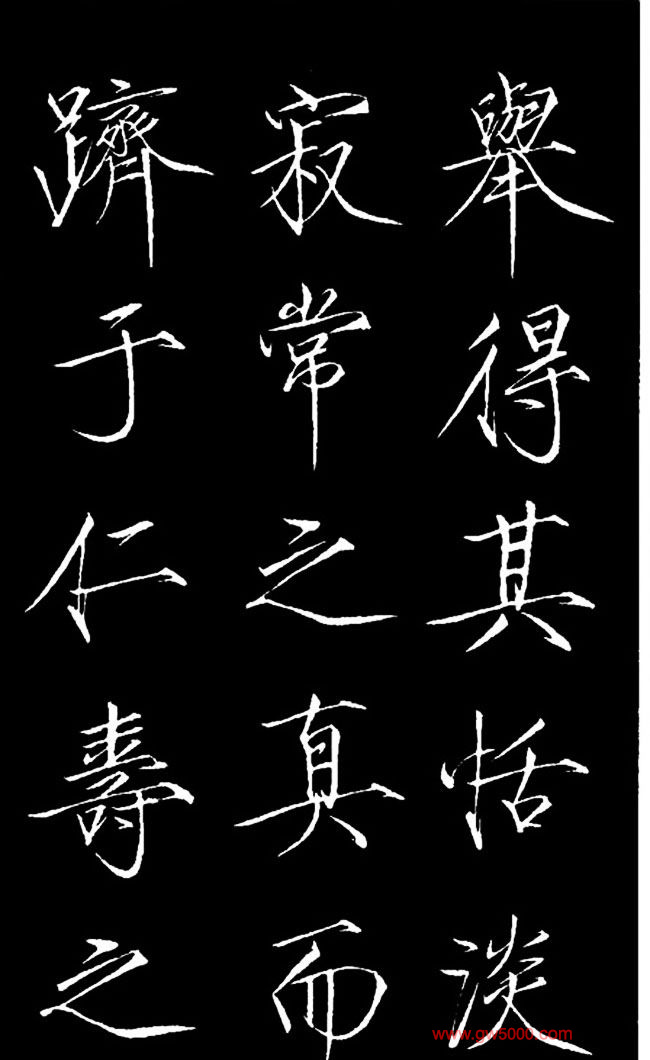 舉得其恬淡
寂常之真而
躋于仁壽之
www.gw5000.com